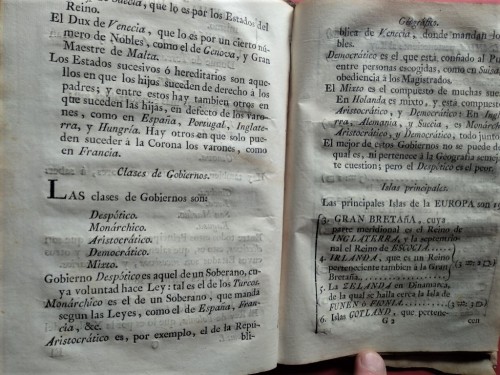 Suecia, que lo es por los Estados del
Reino.
El Dux de Venecia, que lo es por un cierto nú-
mero de Nobles, como el de Genova, y Gran
Maestre de Malta.
Los Estados sucesivos ó hereditarios son aque-
llos en que los hijos suceden de derecho á los
padres; y entre estos hay tambien otros en
que suceden las hijas, en defecto de los varo-
nes, como en España, Portugal, Inglate-
rra, y Hungría. Hay otros en que solo pue-
den suceder á la Corona los varones, como
en Francia.
Clases de Gobiernos.
LAS clases de Gobiernos son:
Despótico.
Monárchico.
Aristocrático.
Democrático.
Mixto.
Gobierno Despótico es aquel de un Soberano, cu-
ya voluntad hace Ley: tal es el de los Turcos.
Monárchico es el de un Soberano, que manda
segun las Leyes, como el de España, Fran-
cia, &c.
Aristocrático es, por exemplo, el de la Repú-
bli-
Géográfico.
blica de Venecia, donde mandan
bles.
Democrático es el que está confiado al
entre personas escogidas, como en
obediencia á los Magistrados.
El Mixto es el compuesto de muchas
En Holanda es mixto, y está
Aristocrático, y Democrático: En
rra, Alemania, y Suecia, es
Aristocrático, y Democrático, todo
El mejor de estos Gobiernos no se puede
qual es, ni pertenece á la Géografia
te la question; pero el Despótico es el
Islas principales.
Las principales Islas de la EUROPA son
3. GRAN BRETAÑA, cuya
parte meridional es el Reino de
INGLATERRA, y la septentrio-
nal el Reino de ESCOCIA
4. IRLANDA, que es un Reino
perteneciente tambien á la Gran
Bretaña
5. La ZELANDA en Dinamarca,
de la qual se halla cerca la Isla de
FUNEN ó FIONIA
6. Islas GOTLAND, que pertene-
G 2 cen